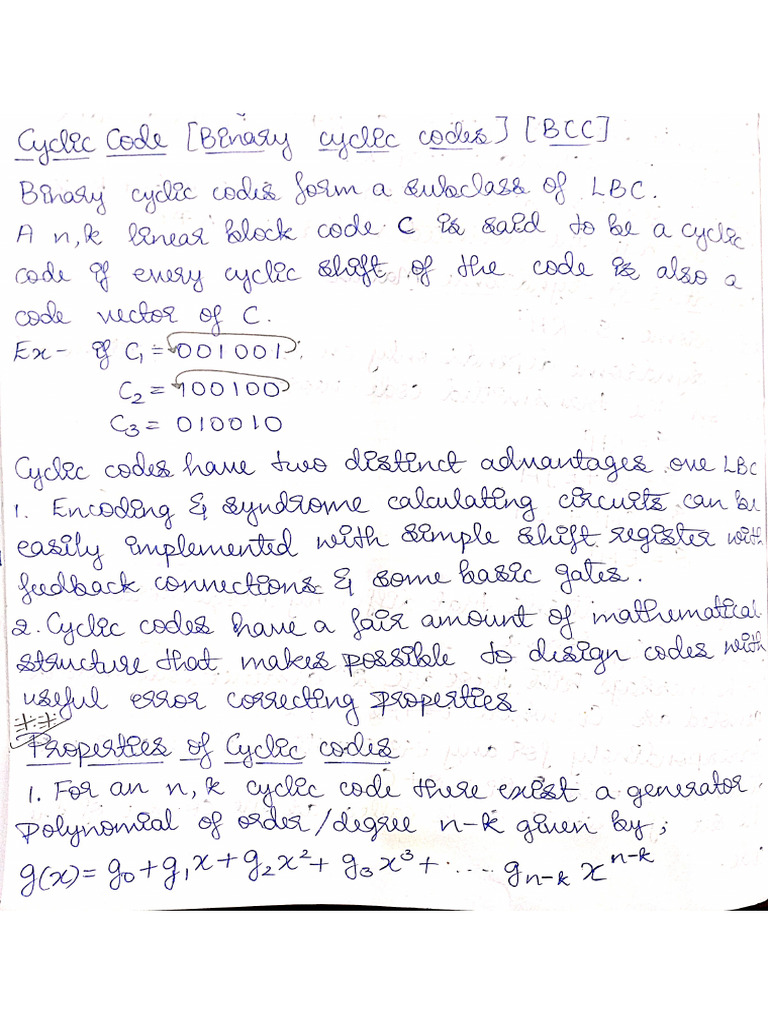 Cyclic Code [Binary cyclic codes] [BCC]
Binary cyclic codes form a subclass of LBC.
A n,k linear block code C is said to be a cyclic
code if every cyclic shift of the code is also a
code vector of C.
Ex- if C₁ = 001001
C₂ = 100100
C₃ = 010010
Cyclic codes have two distinct advantages one LBC
1. Encoding & syndrome calculating circuits can be
easily implemented with simple shift register with
feedback connections & some basic gates.
2. Cyclic codes have a fair amount of mathematical
structure that makes possible to design codes with
useful error correcting properties.
**
Properties of Cyclic codes
1. For an n, k cyclic code there exist a generator
polynomial of order/degree n-k given by;
g(x) = g₀ + g₁x + g₂x² + g₃x³ + ..... gₙ₋ₖ xⁿ⁻ᵏ